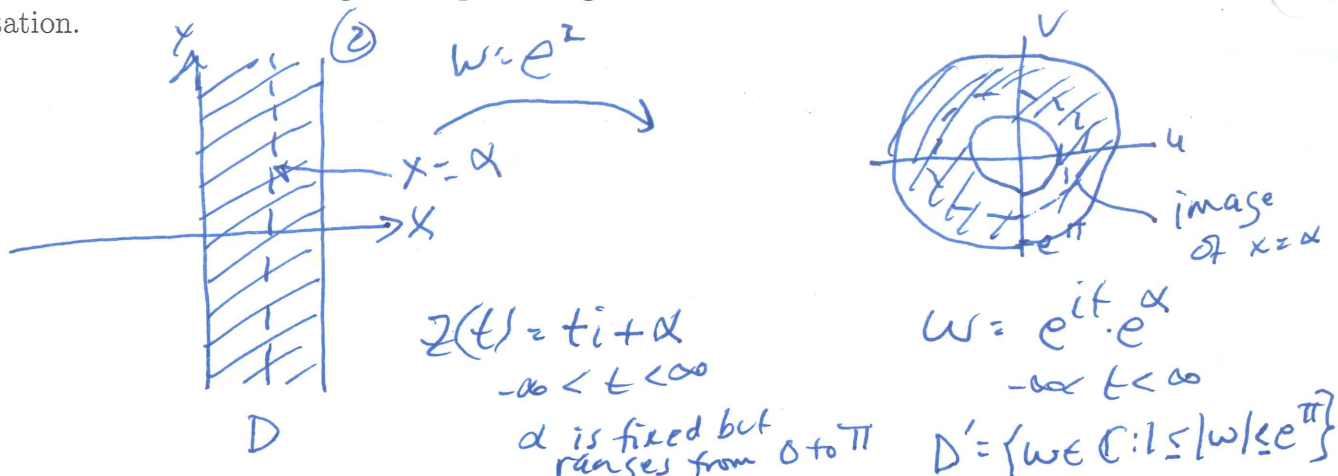 zation.
y
②
w = e^z
x = α
x
D
z(t) = ti + α
-∞ < t < ∞
α is fixed but
ranges from 0 to π
v
u
image
of x = α
-e^π
w = e^{it} · e^α
-∞ < t < ∞
D' = {w ∈ ℂ : 1 ≤ |w| ≤ e^π}